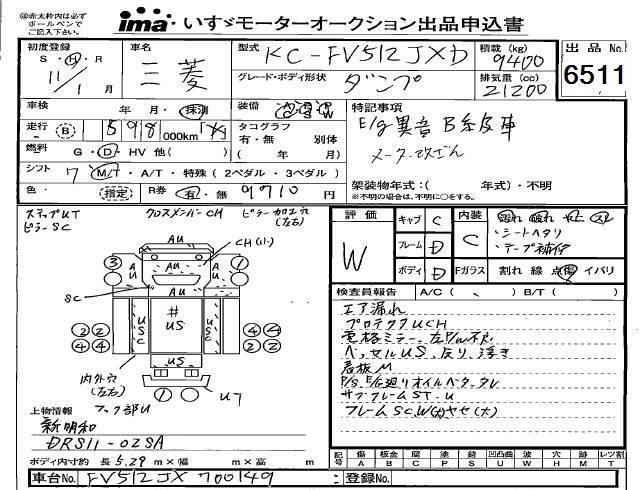 ◎赤太枠内は必ず
ボールペンで
ご記入下さい。
ima いすゞモーターオークション出品申込書
初度登録
S・H・R
11/1月
車名
三菱
型式 KC-FV512JXD
グレード・ボディ形状 ダンプ
積載(kg)
9400
排気量(cc)
21200
出品No.
6511
車検 年・月・抹消
走行 (B) 1598 000km
燃料 G・D・HV 他( )
シフト 7 M/T・A/T・特殊(2ペダル・3ペダル)
色 (指定) R券 有・無 9710円
装備 W
タコグラフ
有・無 別体
( 年 月)
特記事項
E/g異音 B系皮車
メーター改ざん
架装物年式:( 年式)・不明
※不明の場合は、不明に○をする。
ステップUT クロスメンバーCH ピラー加工穴
(左右)
ピラーSC
AU
CH(小)
3
AU
AU
AU
1
SC
USC
#
US
2 2
4 4
2 2
4 4
US
内外穴
(左右)
1
UT
フック部U
上物情報
新明和
DRS11-02SA
ボディ内寸約 長5.29m×幅 m×高 m
評価
W
キャブ C
フレーム D
ボディ D
内装 C
Fガラス
・シートヘタリ
・テープ補修
割れ 線 点 傷 イバリ
検査員報告 A/C( 、 ) B/T( )
エア漏れ
プロテクタUCH
電格ミラー左P/W不良
ベッセルUS、反り、浮き
看板M
P/S、E/G廻りオイルベタ、タレ
サブフレームST、U
フレームSC、W(大)ヤセ(大)
記号
傷 板金 腐 塗 錆 凹凸曲 波 穴 跡 ヒビ レツ割
A B C P S U W H M T
車台No. FV512JX 700149
登録No.